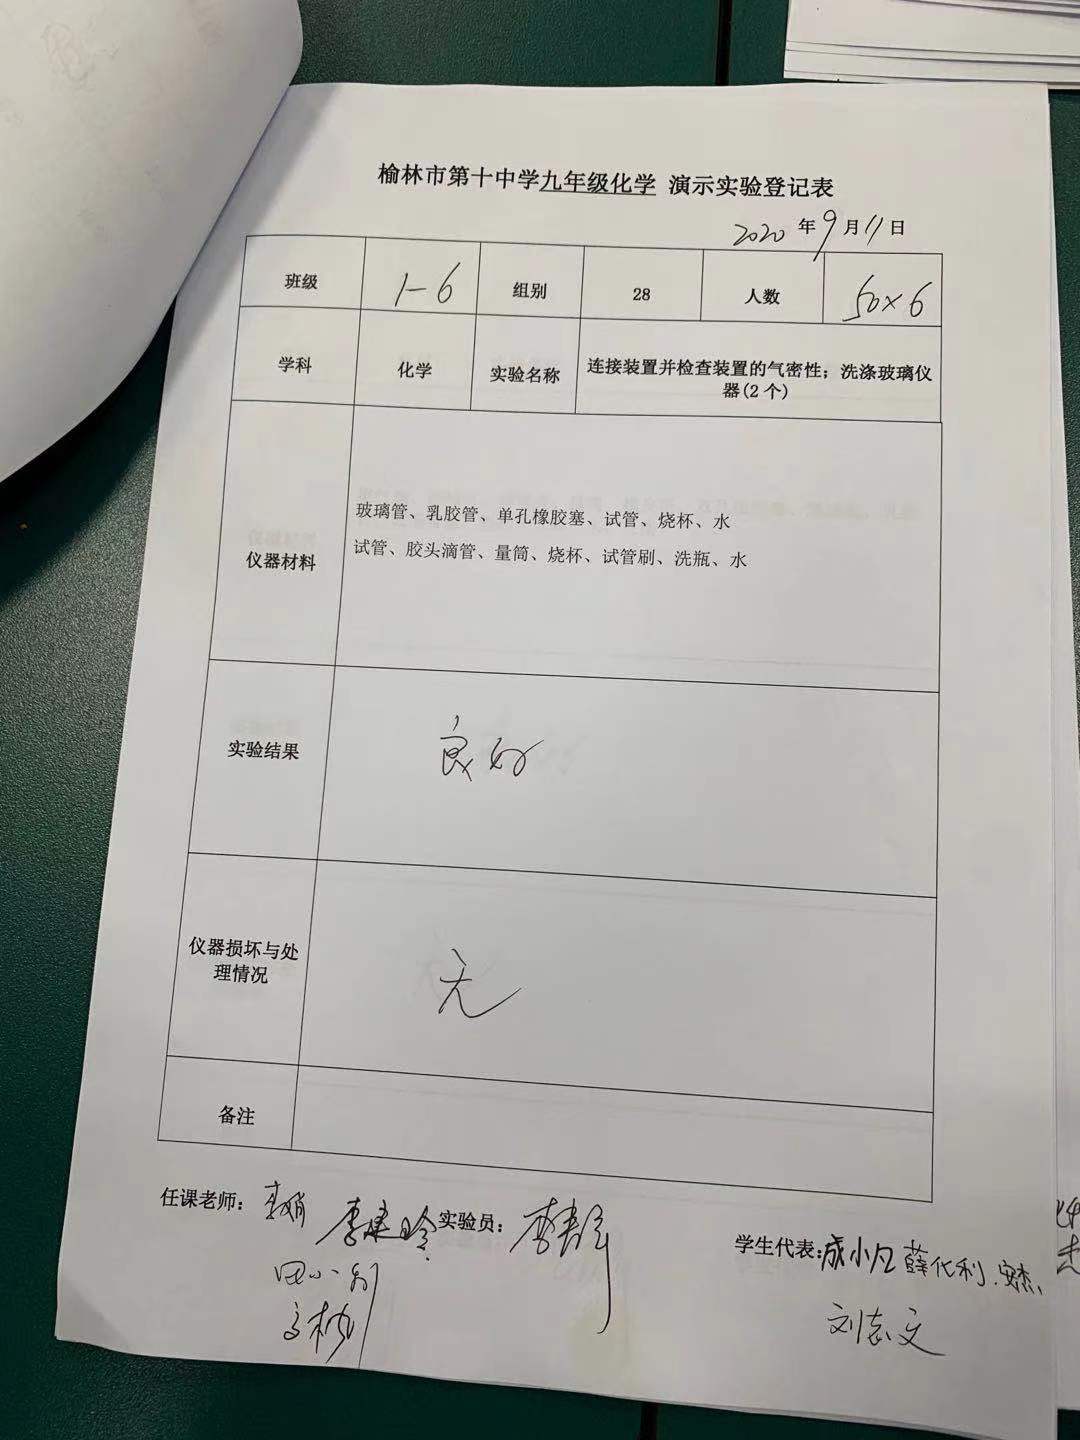 榆林市第十中学九年级化学 演示实验登记表
2020 年 9 月 11 日
班级 1-6 组别 28 人数 50×6
学科 化学 实验名称 连接装置并检查装置的气密性；洗涤玻璃仪
器(2 个)
仪器材料
玻璃管、乳胶管、单孔橡胶塞、试管、烧杯、水
试管、胶头滴管、量筒、烧杯、试管刷、洗瓶、水
实验结果 良好
仪器损坏与处
理情况
无
备注
任课老师： 李建玲 实验员：
学生代表：成小凡 薛化利、安杰、
刘志文